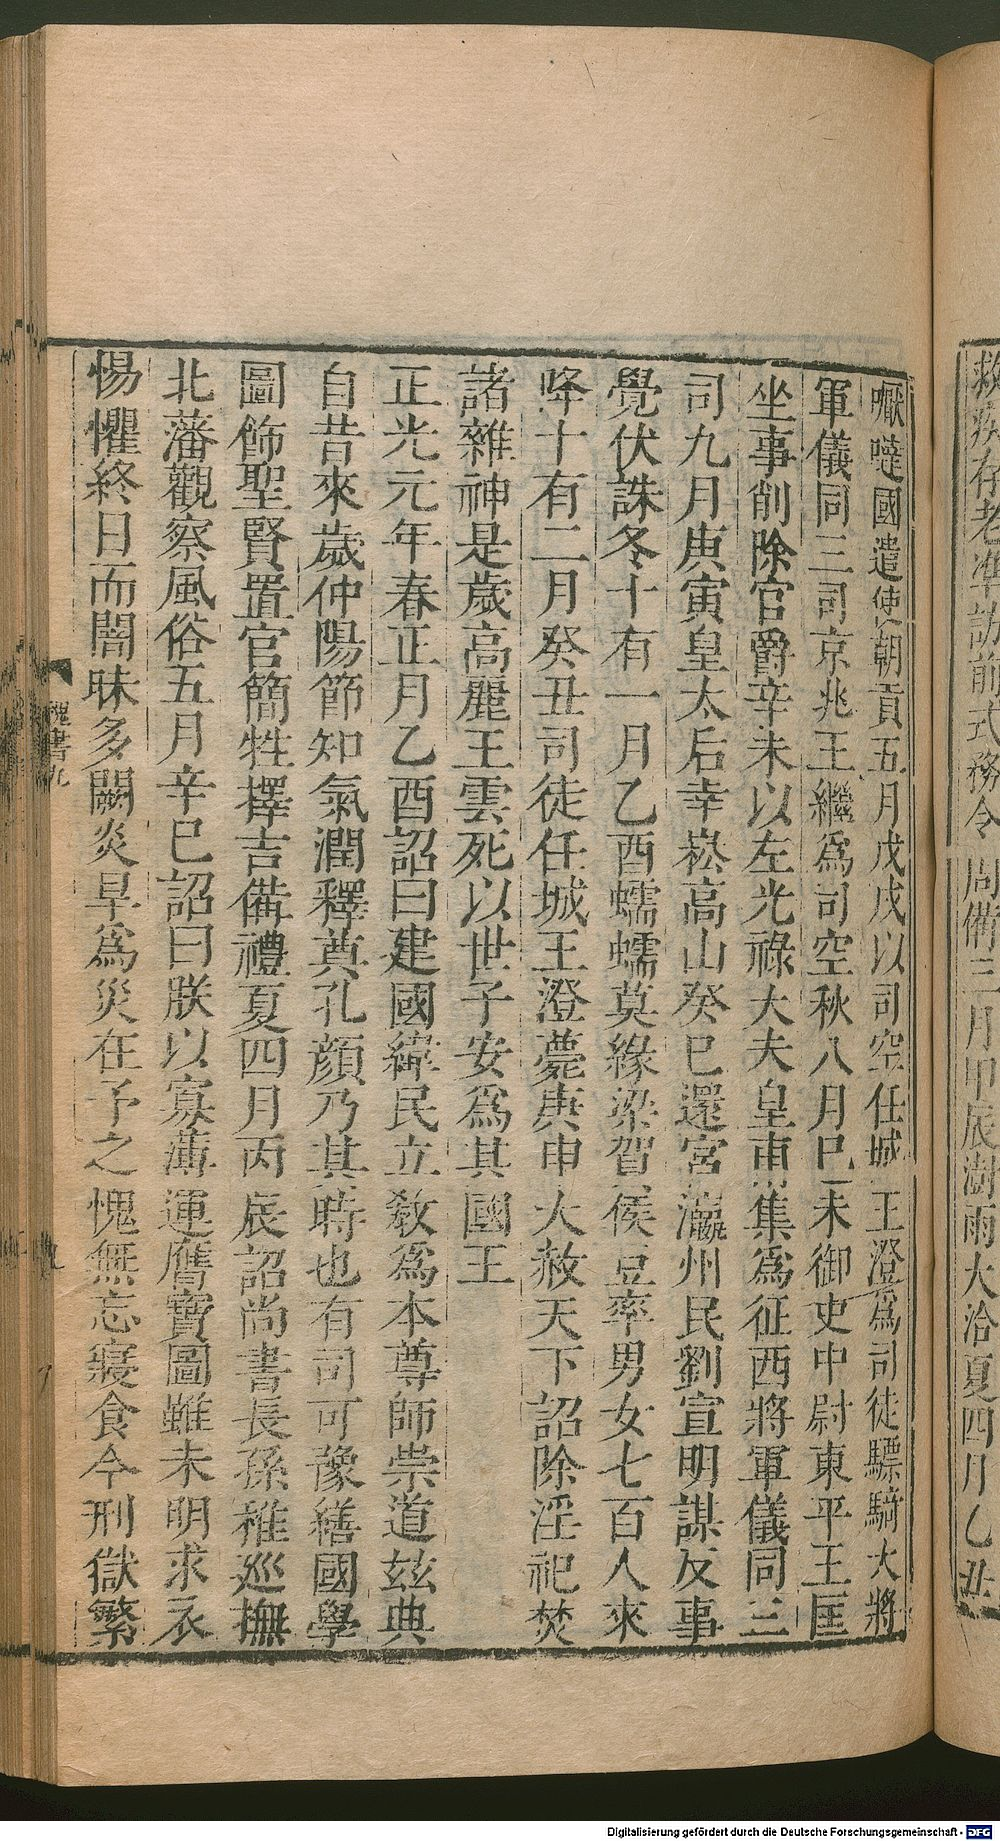 救疾存老準訪前式務令周備三月甲辰澍雨大洽夏四月乙丑
嚈噠國遣使朝貢五月戊戌以司空任城王澄爲司徒驃騎大將
軍儀同三司京兆王繼爲司空秋八月巳未御史中尉東平王匡
坐事削除官爵辛未以左光祿大夫皇甫集爲征西將軍儀同三
司九月庚寅皇太后幸崧高山癸巳還宮瀛州民劉宣明謀反事
覺伏誅冬十有一月乙酉蠕蠕莫緣梁賀侯豆率男女七百人來
降十有二月癸丑司徒任城王澄薨庚申大赦天下詔除淫祀焚
諸雜神是歲高麗王雲死以世子安爲其國王
正光元年春正月乙酉詔曰建國緯民立敎爲本尊師崇道兹典
自昔來歲仲陽節知氣潤釋奠孔顔乃其時也有司可豫繕國學
圖飾聖賢置官簡牲擇吉備禮夏四月丙辰詔尚書長孫稚巡撫
北藩觀察風俗五月辛巳詔曰朕以寡薄運膺寶圖雖未明求衣
惕懼終日而闇昧多闕炎旱爲災在予之愧無忘寢食今刑獄繁
魏書九
九
Digitalisierung gefördert durch die Deutsche Forschungsgemeinschaft - DFG